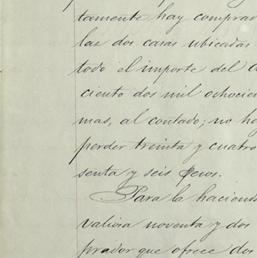 tamente hay comprad
las dos casas ubicadas
todo el importe del
ciento dos mil ochocien
mas, al contado; no h
perder treinta y cuatro
senta y seis pesos.
Para la haciend
valiosa noventa y dos
prador que ofrece dos